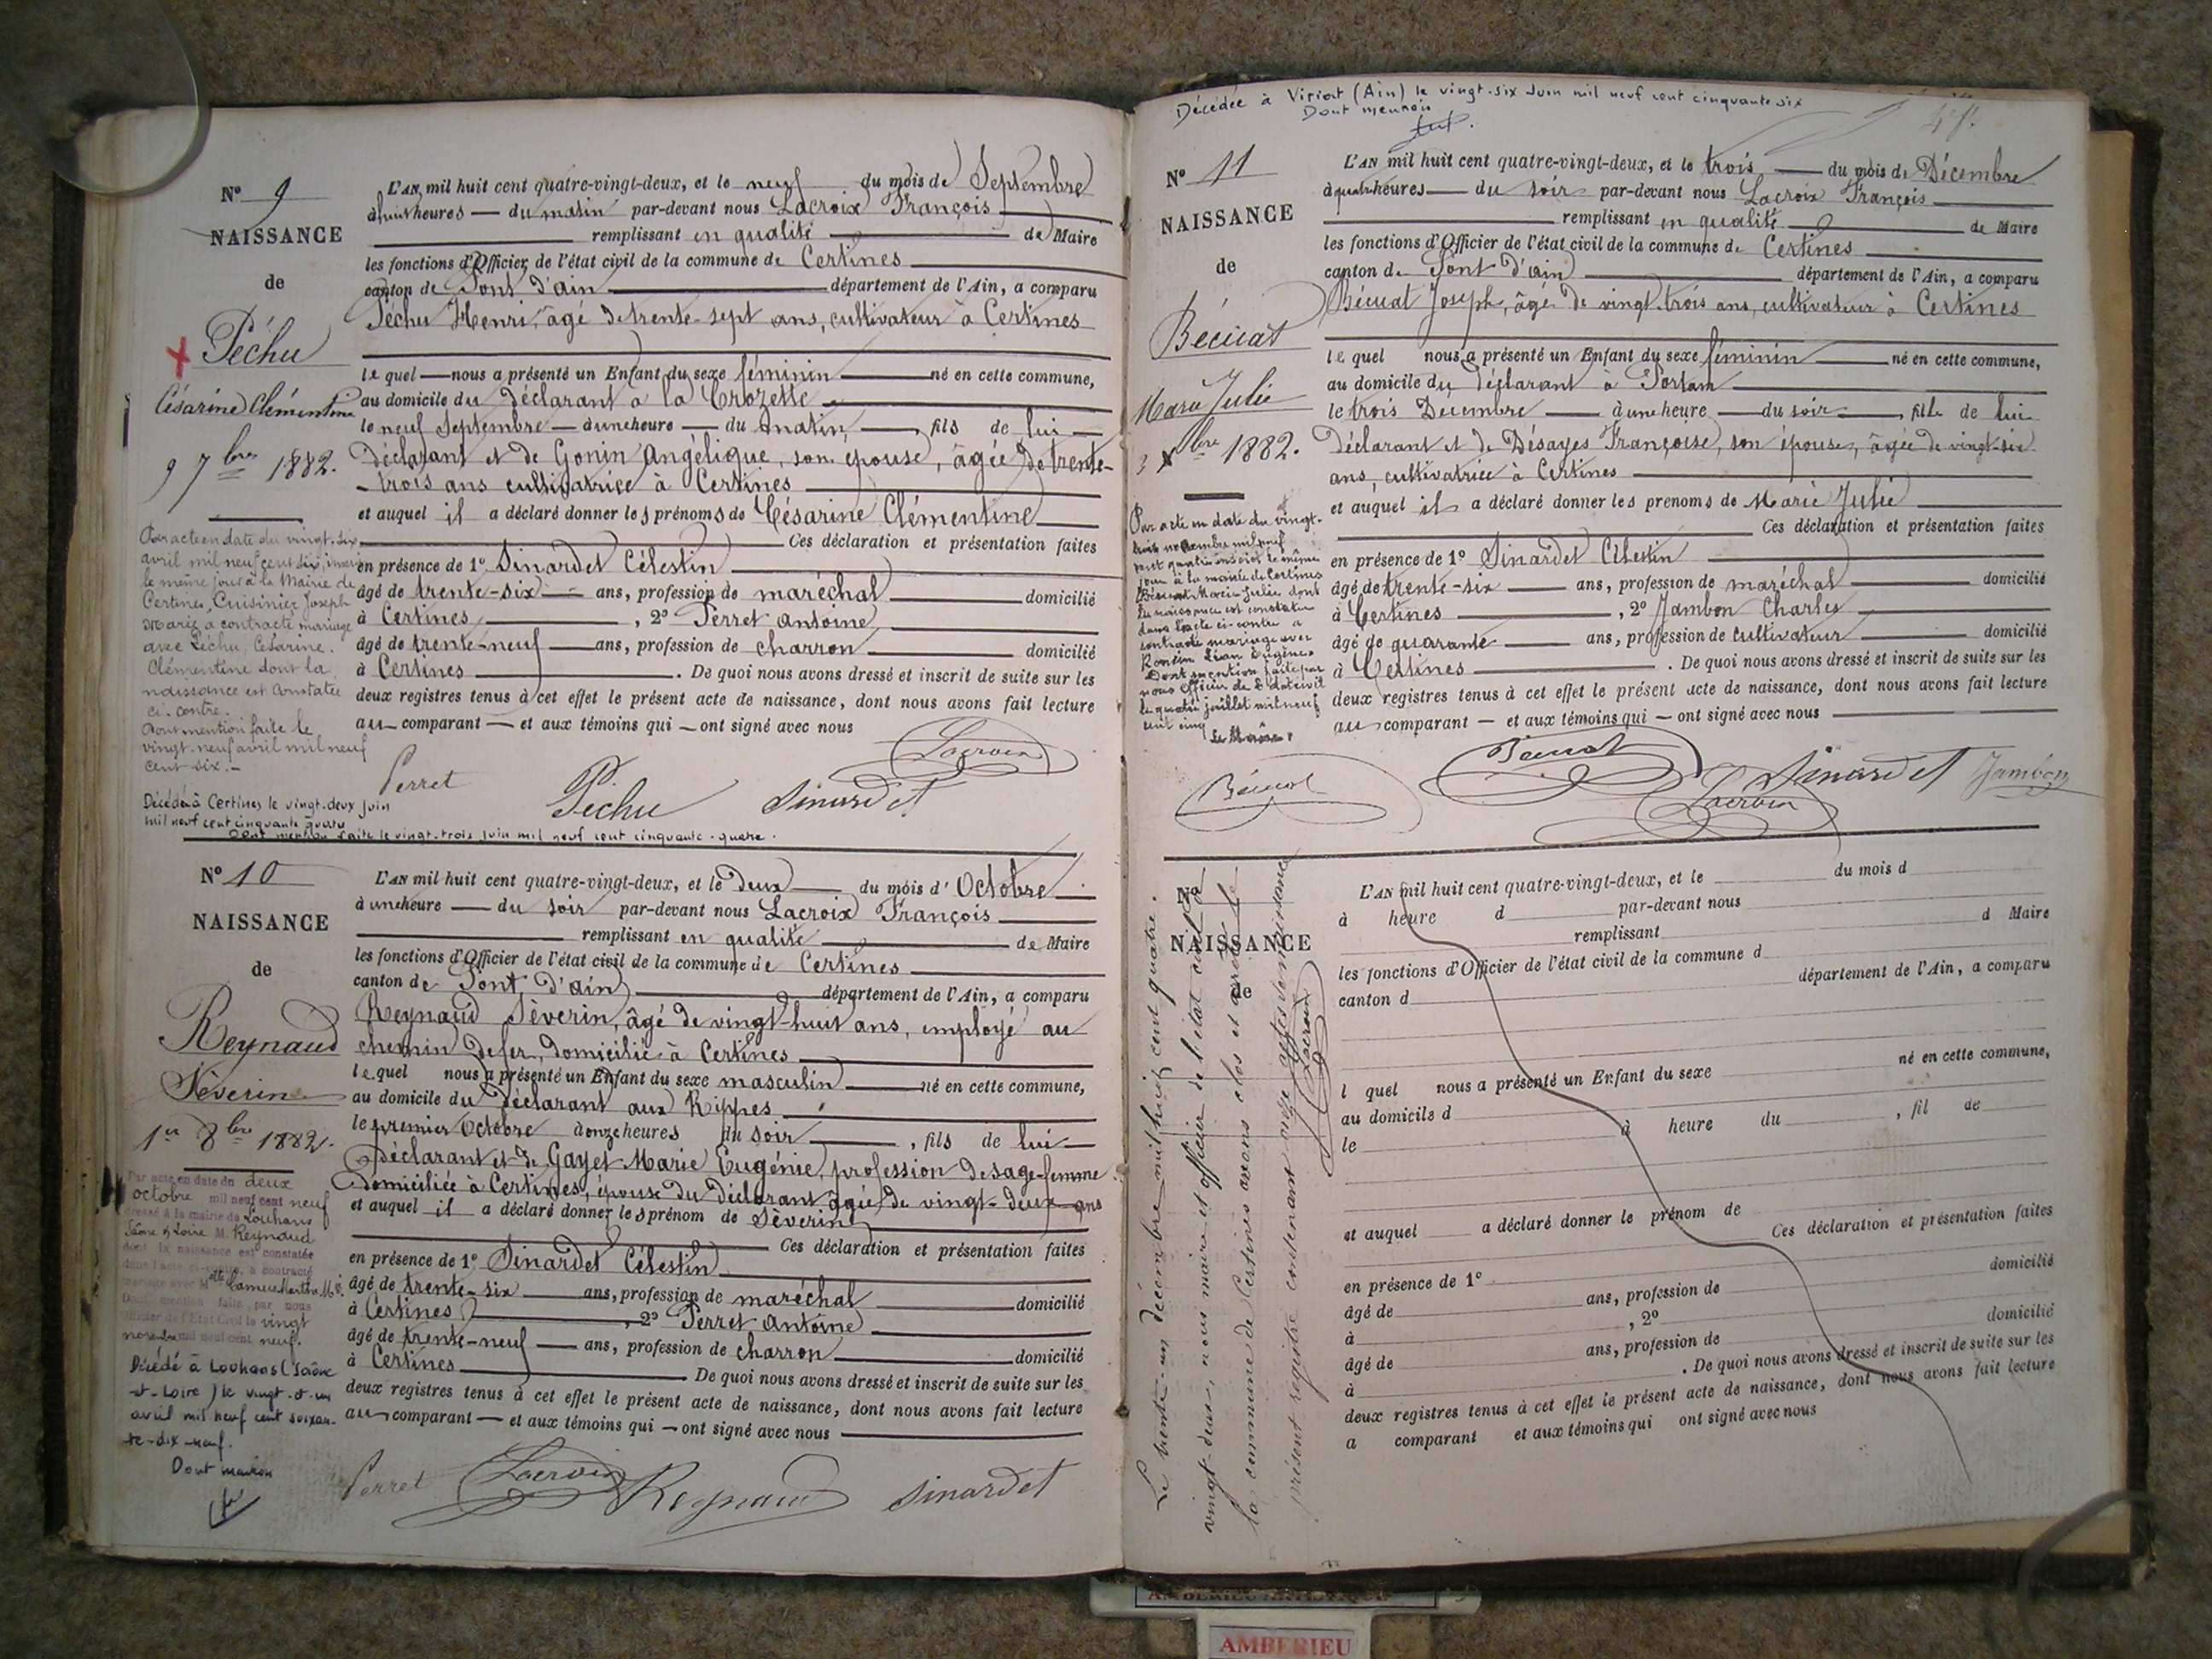 N° 9
NAISSANCE
de
Péchu
Césarine Clémentine
9 7bre 1882.
L'AN mil huit cent quatre-vingt-deux, et le neuf du mois de Septembre
à huit heures du matin par-devant nous Lacroix François
remplissant en qualité de Maire
les fonctions d'Officier de l'état civil de la commune de Certines
canton de Pont d'ain département de l'Ain, a comparu
Péchu Henri, âgé de trente-sept ans, cultivateur à Certines
le quel nous a présenté un Enfant du sexe féminin né en cette commune,
au domicile du déclarant à la Crozette
le neuf Septembre à une heure du matin, fils de lui
déclarant et de Gonin Angélique, son épouse, âgée de trente-
-trois ans cultivatrice à Certines
et auquel il a déclaré donner les prénoms de Césarine Clémentine
Ces déclaration et présentation faites
en présence de 1° Sinardet Célestin
âgé de trente-six ans, profession de maréchal domicilié
à Certines, 2° Perret Antoine
âgé de trente-neuf ans, profession de charron domicilié
à Certines. De quoi nous avons dressé et inscrit de suite sur les
deux registres tenus à cet effet le présent acte de naissance, dont nous avons fait lecture
au comparant et aux témoins qui ont signé avec nous
Par acte en date du vingt-six
avril mil neuf cent six, inscrit
le même jour à la Mairie de
Certines, Cuisinier Joseph
Marie a contracté mariage
avec Péchu, Césarine.
Clémentine dont la
naissance est constatée
ci-contre.
Dont mention faite le
vingt-neuf avril mil neuf
cent six.
Perret Péchu Sinardet Lacroix
Décédée à Certines le vingt-deux juin
mil neuf cent cinquante quatre
Dont mention faite le vingt-trois juin mil neuf cent cinquante-quatre.
N° 10
NAISSANCE
de
Reynaud
Sèverin
1er 8bre 1882.
L'AN mil huit cent quatre-vingt-deux, et le Deux du mois d'Octobre
à une heure du soir par-devant nous Lacroix François
remplissant en qualité de Maire
les fonctions d'Officier de l'état civil de la commune de Certines
canton de Pont d'ain département de l'Ain, a comparu
Reynaud Sèverin, âgé de vingt-huit ans, employé au
chemin de fer, domicilié à Certines
le quel nous a présenté un Enfant du sexe masculin né en cette commune,
au domicile du déclarant aux Rippes
le premier Octobre à onze heures du soir, fils de lui
déclarant et de Gayet Marie Eugénie, profession de sage-femme
domiciliée à Certines, épouse du déclarant âgée de vingt-deux ans
et auquel il a déclaré donner les prénom de Sèverin
Ces déclaration et présentation faites
en présence de 1° Sinardet Célestin
âgé de trente-six ans, profession de maréchal domicilié
à Certines, 2° Perret Antoine
âgé de trente-neuf ans, profession de charron domicilié
à Certines De quoi nous avons dressé et inscrit de suite sur les
deux registres tenus à cet effet le présent acte de naissance, dont nous avons fait lecture
au comparant et aux témoins qui ont signé avec nous
Par acte en date du deux
octobre mil neuf cent neuf
dressé à la mairie de Louhans
Saône & Loire M. Reynaud
dont la naissance est constatée
dans l'acte ci-contre, a contracté
mariage avec Melle
Dont mention faite par nous
Officier de l'Etat Civil le vingt
novembre mil neuf cent neuf.
Décédé à Louhans (Saône
-et-Loire) le vingt-et-un
avril mil neuf cent soixan-
te-dix-neuf.
Dont mention
Perret Lacroix Reynaud Sinardet
Décédée à Viriat (Ain) le vingt-six Juin mil neuf cent cinquante six
Dont mention
47.
N° 11
NAISSANCE
de
Bécuat
Marie Julie
3 Xbre 1882.
L'AN mil huit cent quatre-vingt-deux, et le trois du mois de Décembre
à quatre heures du soir par-devant nous Lacroix François
remplissant en qualité de Maire
les fonctions d'Officier de l'état civil de la commune de Certines
canton de Pont d'ain département de l'Ain, a comparu
Bécuat Joseph, âgé de vingt-trois ans, cultivateur à Certines
le quel nous a présenté un Enfant du sexe féminin né en cette commune,
au domicile du déclarant à
le trois Décembre à une heure du soir, fille de lui
déclarant et de Désayes Françoise, son épouse, âgée de vingt-six
ans, cultivatrice à Certines
et auquel il a déclaré donner les prénoms de Marie Julie
Ces déclaration et présentation faites
en présence de 1° Sinardet Célestin
âgé de trente-six ans, profession de maréchal domicilié
à Certines, 2° Jambon Charles
âgé de quarante ans, profession de cultivateur domicilié
à Certines. De quoi nous avons dressé et inscrit de suite sur les
deux registres tenus à cet effet le présent acte de naissance, dont nous avons fait lecture
au comparant et aux témoins qui ont signé avec nous
Par acte en date du vingt-
trois novembre mil neuf
cent quatre inscrit le même
jour à la mairie de Certines
Bécuat Marie Julie dont
la naissance est constatée
dans l'acte ci-contre a
contracté mariage avec
Eugène
Dont mention faite par
nous Officier de l'état civil
le quatre juillet mil neuf
cent cinq Le Maire
Bécuat Bécuat Lacroix Sinardet Jambon
N°
NAISSANCE
de
L'AN mil huit cent quatre-vingt-deux, et le du mois d
à heure d par-devant nous
remplissant d Maire
les fonctions d'Officier de l'état civil de la commune d
canton d département de l'Ain, a comparu
l quel nous a présenté un Enfant du sexe né en cette commune,
au domicile d
le à heure du, fil de
et auquel a déclaré donner le prénom de
Ces déclaration et présentation faites
en présence de 1° domicilié
âgé de ans, profession de
à, 2° domicilié
âgé de ans, profession de
à. De quoi nous avons dressé et inscrit de suite sur les
deux registres tenus à cet effet le présent acte de naissance, dont nous avons fait lecture
a comparant et aux témoins qui ont signé avec nous
Le trente-un décembre mil huit cent quatre.
vingt-deux, nous maire et officier de l'état civil de
la commune de Certines avons clos et arrêté le
présent registre contenant onze actes de naissance
Lacroix
AMBERIEU